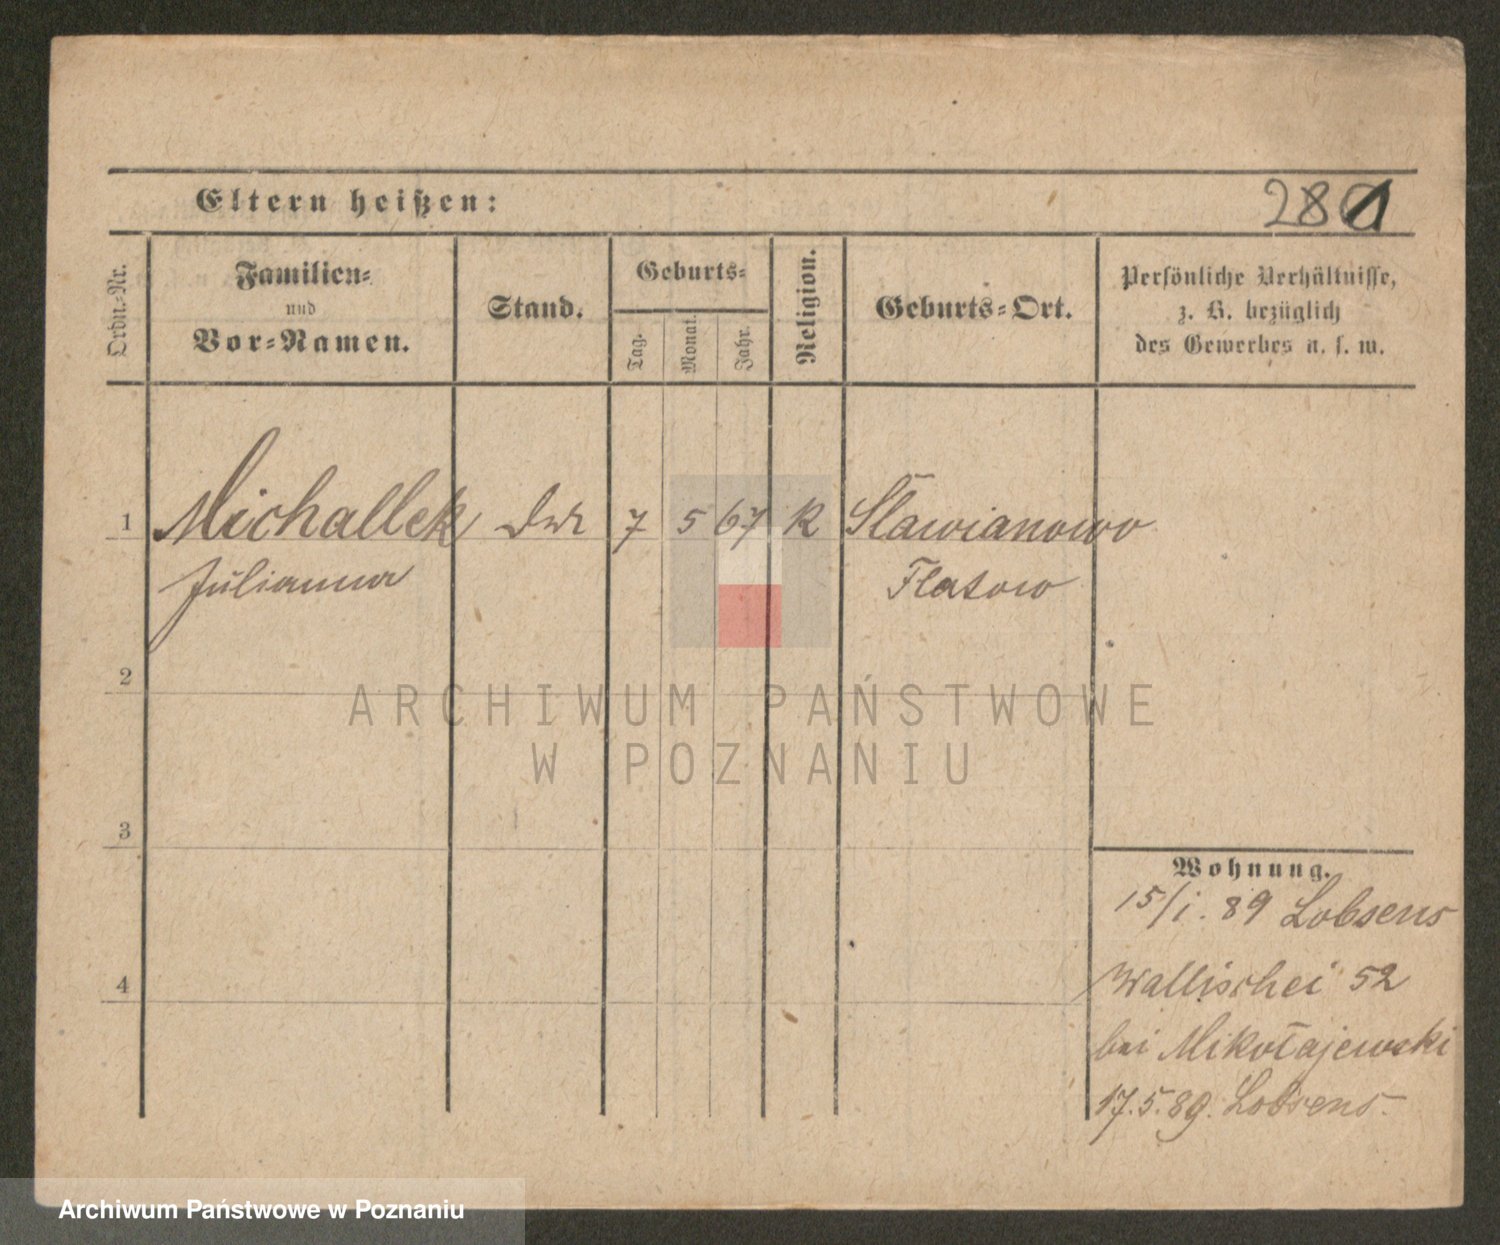 Eltern heißen:
281
Ordn.-Nr.
Familien-
und
Vor-Namen.
Stand.
Geburts-
Tag.
Monat.
Jahr.
Religion.
Geburts-Ort.
Persönliche Verhältnisse,
z. B. bezüglich
des Gewerbes u. s. w.
1 Michallek 7 5 67 K Sławianowo
Julianna Flatow
2
3
4
Wohnung.
15/1. 89 Lobsens
Wallischei 52
bei Mikołajewski
17.5.89. Lobsens.
ARCHIWUM PAŃSTWOWE
W POZNANIU
Archiwum Państwowe w Poznaniu